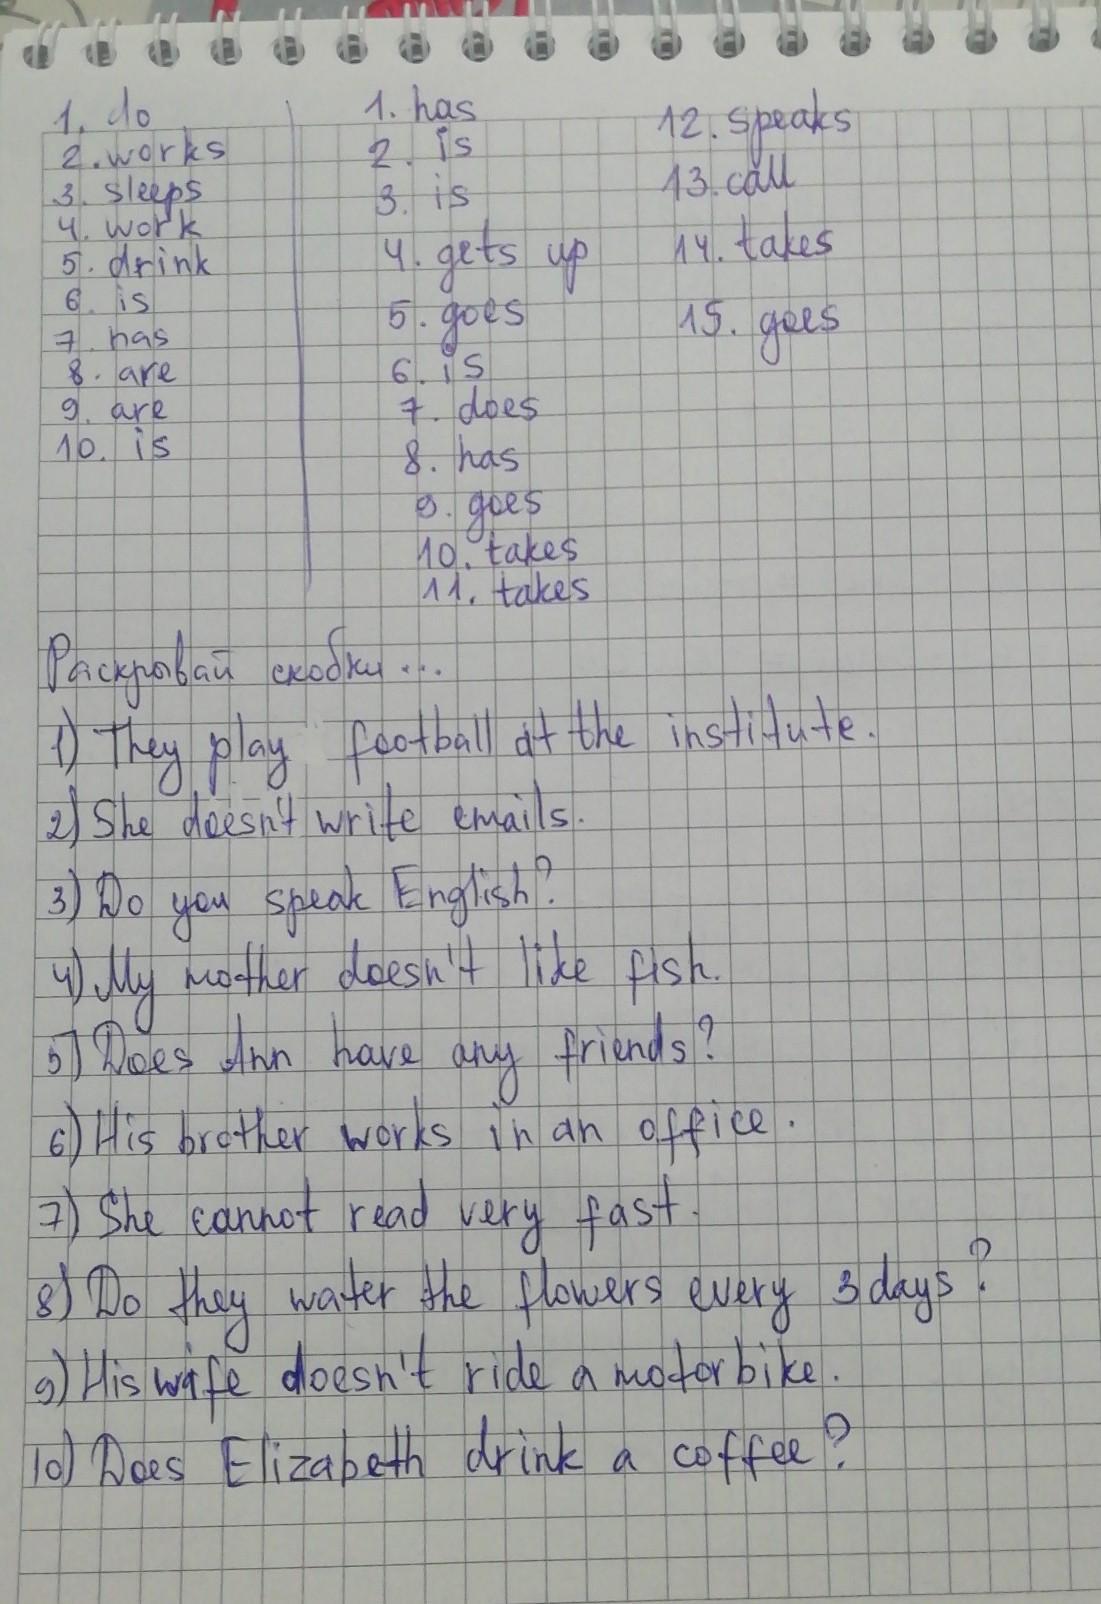 1. do
2. works
3. sleeps
4. work
5. drink
6. is
7. has
8. are
9. are
10. is
1. has
2. is
3. is
4. gets up
5. goes
6. is
7. does
8. has
9. goes
10. takes
11. takes
12. speaks
13. call
14. takes
15. goes
Раскрывай скобки...
1) They play football at the institute.
2) She doesn't write emails.
3) Do you speak English?
4) My mother doesn't like fish.
5) Does Ann have any friends?
6) His brother works in an office.
7) She cannot read very fast.
8) Do they water the flowers every 3 days?
9) His wife doesn't ride a motorbike.
10) Does Elizabeth drink a coffee?